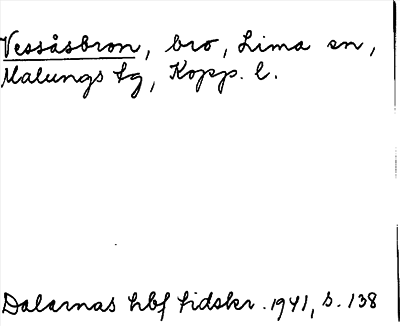 Vessåsbron, bro, Lima sn,
Malungs tg, Kopp. l.
Dalarnas hbf tidskr. 1941, s. 138